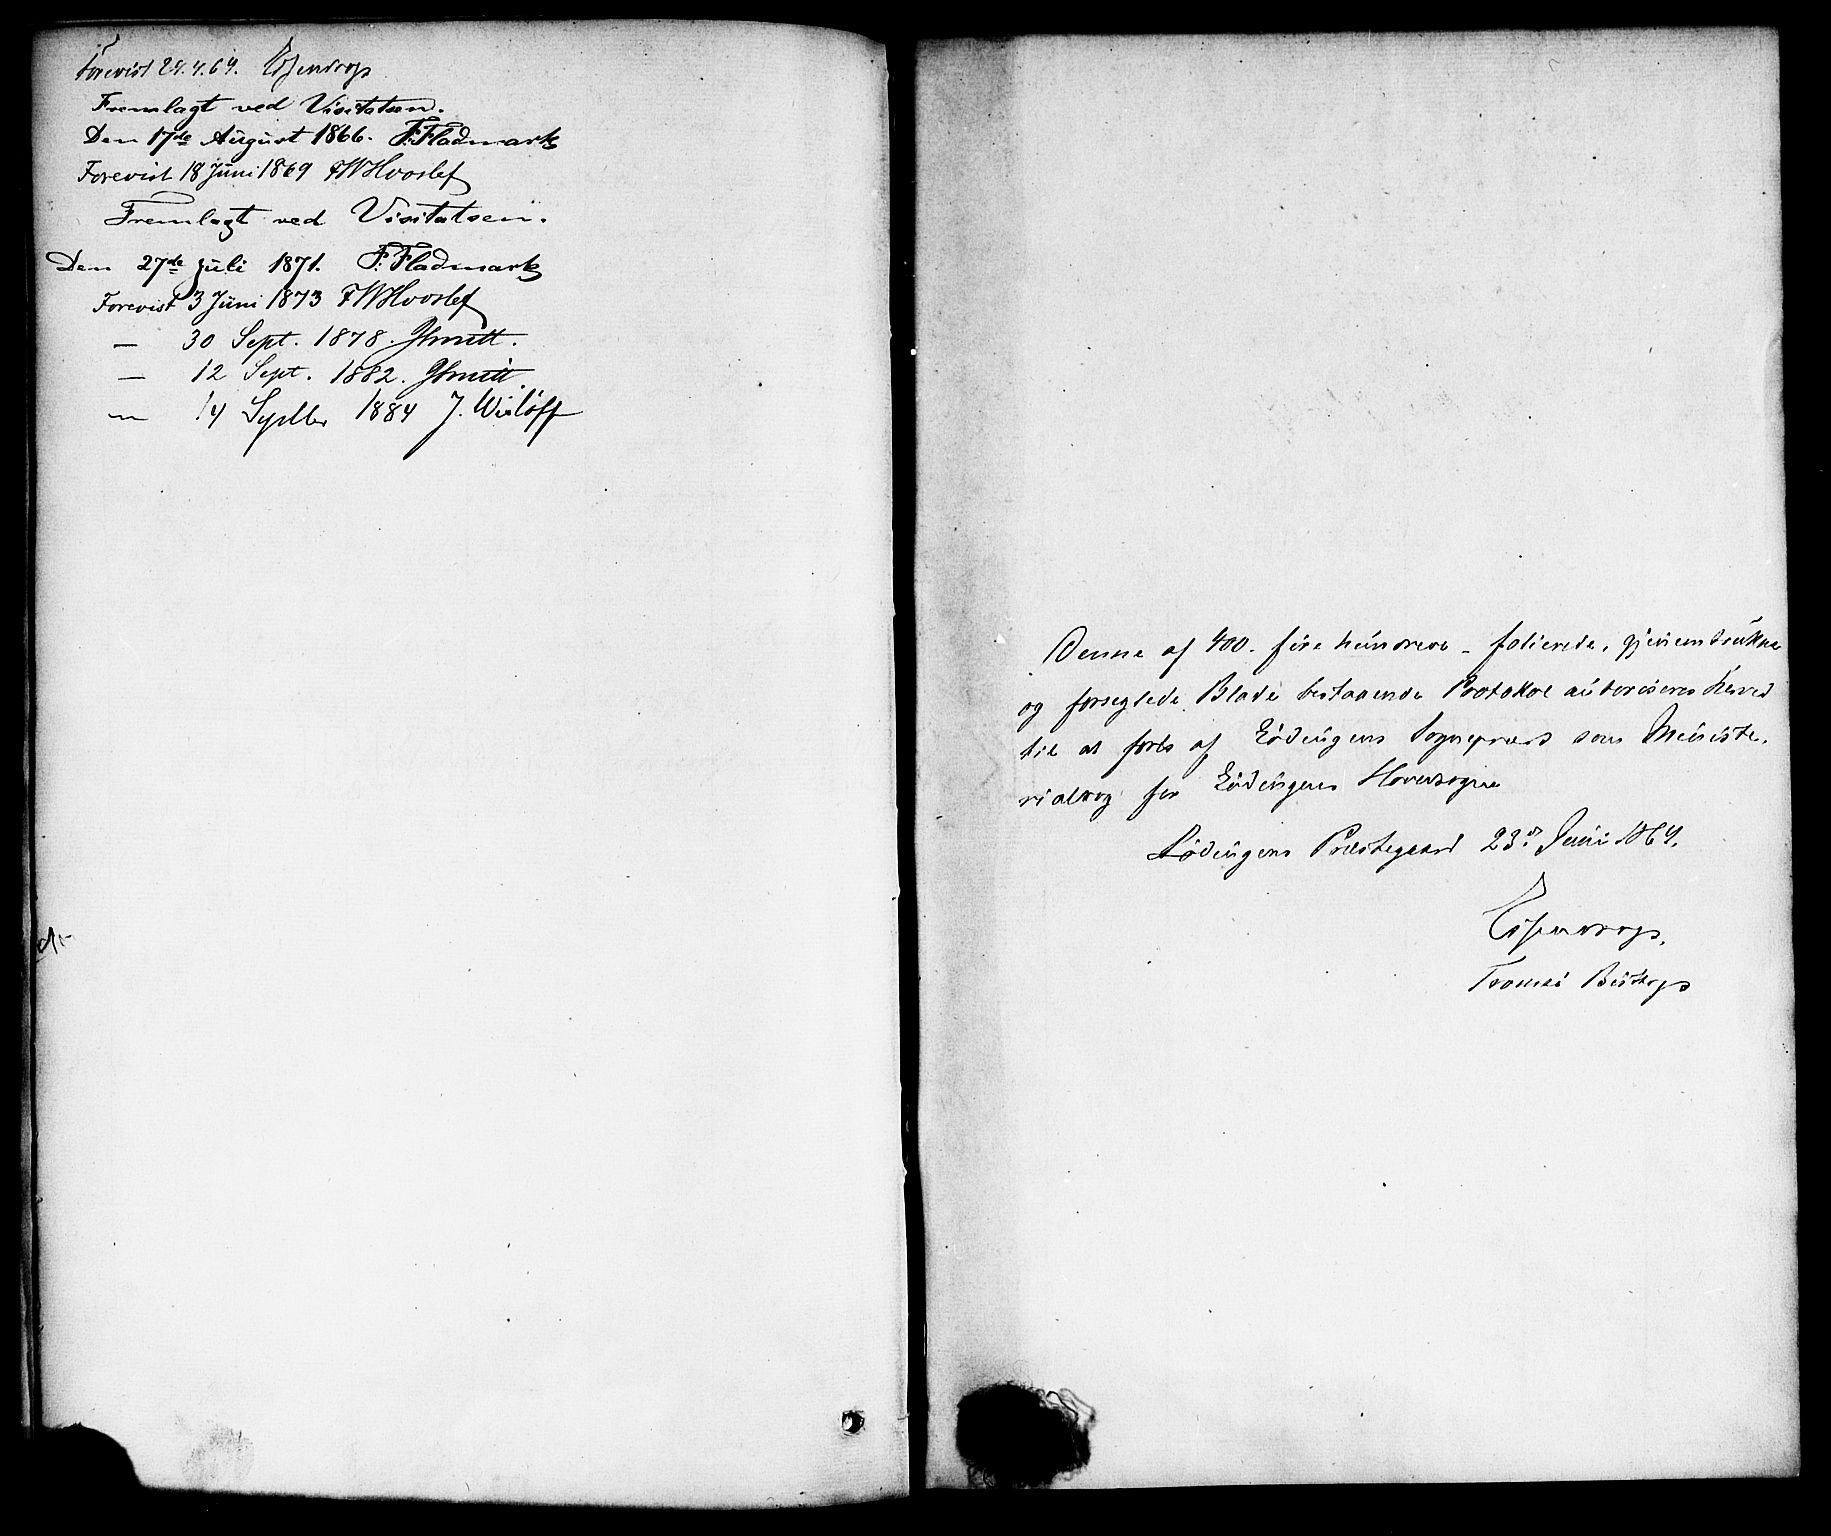 Forevist 24.4.64. Essendrop
Fremlagt ved Visitatsen.
Den 17de August 1866. F. Fladmark
Forevist 18 Juni 1869 FWHvoslef
Fremlagt ved Visitatsen.
Den 27de Juli 1871. F. Fladmark
Forevist 3 Juni 1873 FWHvoslef
— 30 Sept. 1878. JSmitt.
— 12 Sept. 1882. JSmitt
— 14 Septbr 1884 J. Wisløff
Denne af 400. fire hundrede - folierede, gjennemtrukne
og forseglede Blade bestaaende Protokol autoriseres herved
til at føres af Lødingens Sognepræst som Ministe-
rialbog for Lødingens Hovedsogn
Lødingens Præstegaard 23d Juni 1864.
Essendrop.
Tromsø Biskop